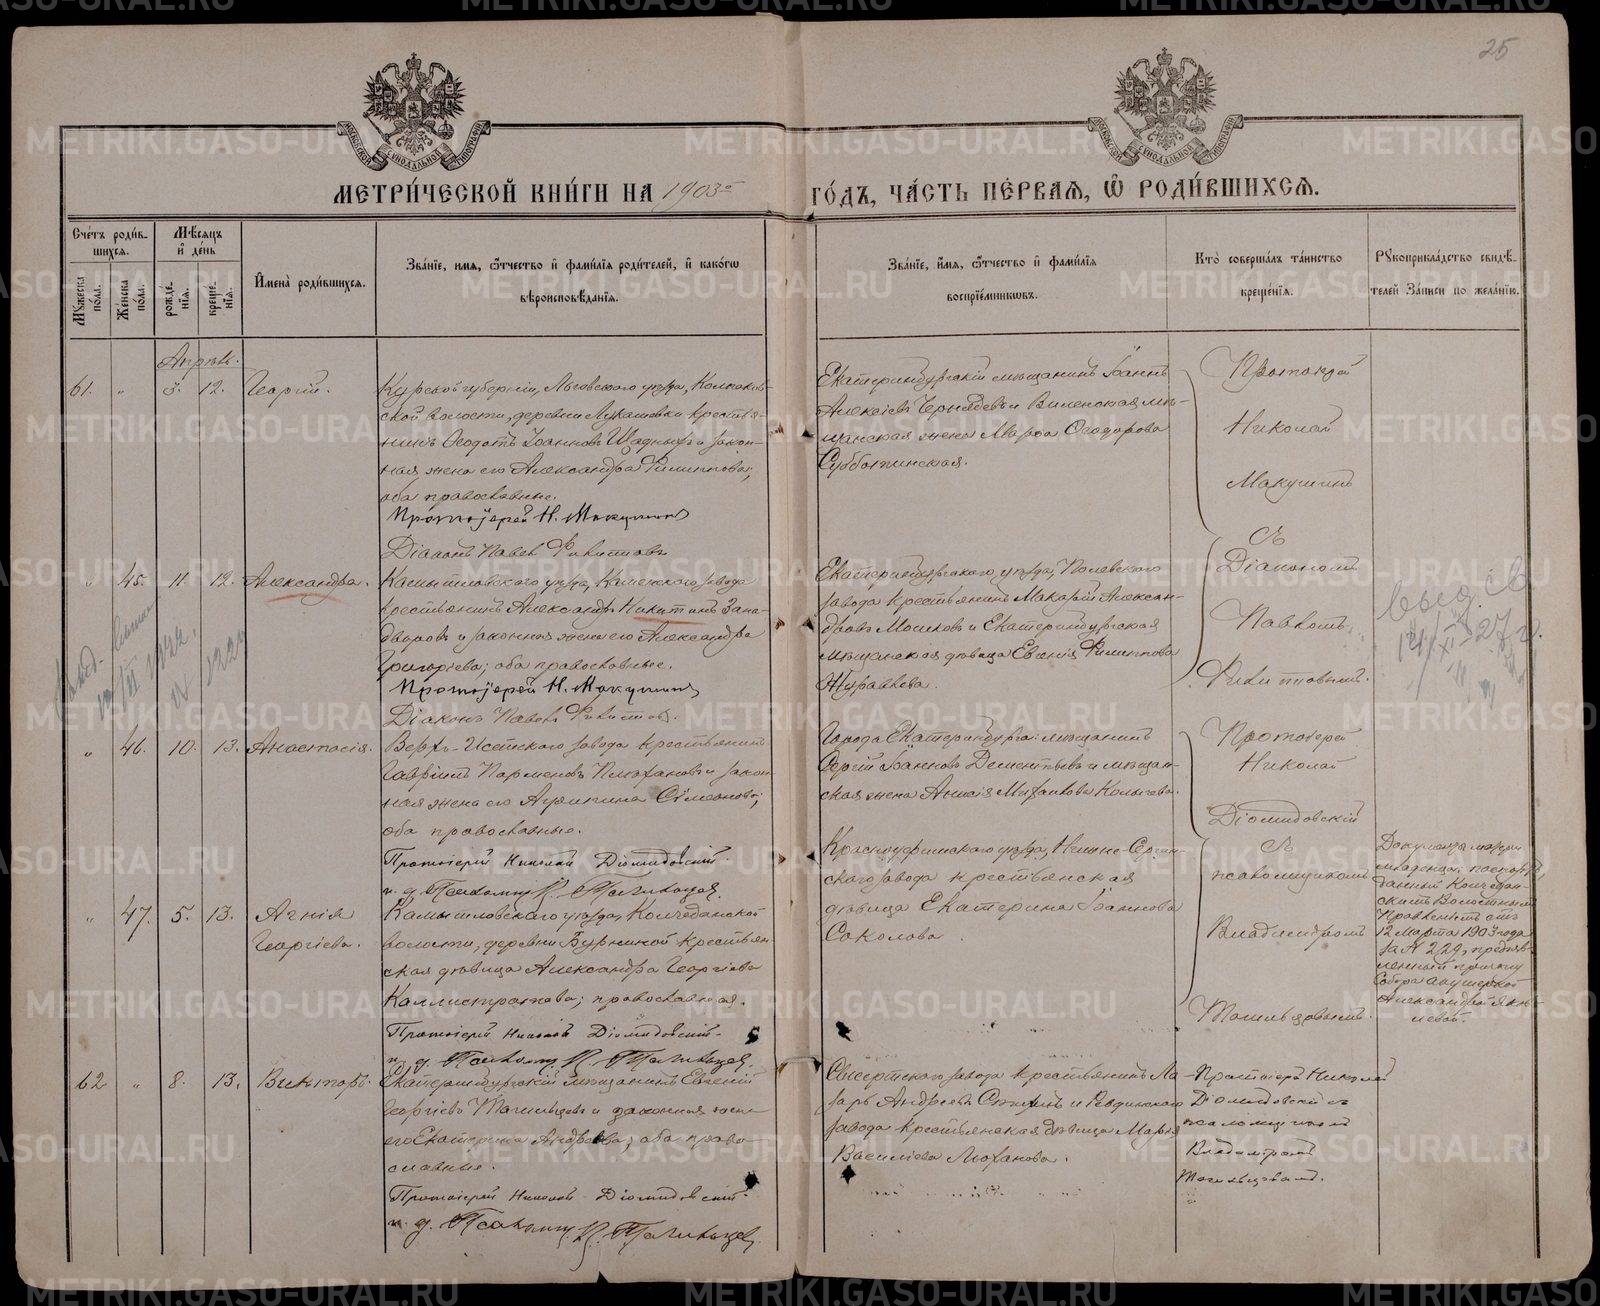 25
МОСКОВСКОЙ СѴНОДАЛЬНОЙ ТИПОГРАФІИ
МОСКОВСКОЙ СѴНОДАЛЬНОЙ ТИПОГРАФІИ
МЕТРИ́ЧЕСКОЙ КНИ́ГИ НА 1903й ГО́ДЪ, ЧА́СТЬ ПЕ́РВАЯ, Ѿ РОДИ́ВШИХСЯ.
Сче́тъ роди́в-
шихся.
Мꙋжеска по́ла.
Же́нска по́ла.
Мѣ́сяцъ
и҆ де́нь
рожде́нїя.
креще́нїя.
И҆мена̀ роди́вшихся.
Зва́нїе, имя, ѻ҆́тчество и҆ фами́лїя роди́телей, и҆ како́гѡ
вѣроисповѣ́данїя.
Зва́нїе, и҆́мя, ѻ҆́тчество и҆ фами́лїя
воспрїе́мникѡвъ.
Кто̀ соверша́лъ та́инство
креще́нїя.
Рꙋкоприкла́дство свидѣ́-
телей за́писи по жела́нїю.
Апрѣль.
61. " 3. 12. Георгій.
Курской губерніи, Льговскаго уѣзда,
ской волости, деревни Лукашевки крестья-
нинъ Ѳеодотъ Іоанновъ и закон-
ная жена его Александра Филиппова;
оба православные.
Протоіерей Н. Макушинъ
Діаконъ Павелъ
Екатеринбургскій мѣщанинъ Іоаннъ
Алексіевъ Чернядевъ и Виленская мѣ-
щанская жена Марѳа Ѳеодорова
Субботинская.
Протоіерей
Николай
Макушинъ
съ
Діакономъ
Павломъ
" 45. 11. 12. Александра.
Камышловскаго уѣзда, Каменскаго завода
крестьянинъ Александръ Никитинъ Запа-
дворовъ и законная жена его Александра
Григорьева; оба православные.
Протоіерей Н. Макушинъ
Діаконъ Павелъ
Екатеринбургскаго уѣзда, Полевскаго
завода крестьянинъ Макарій Алексан-
дровъ и Екатеринбургская
мѣщанская дѣвица Евгенія Филиппова
Журавлева.
" 46. 10. 13. Анастасія.
Верхъ-Исетскаго завода крестьянинъ
Гавріилъ Парменовъ Плюхановъ и закон-
ная жена его Агриппина Симеонова;
оба православные.
Протоіерей Николай Діомидовскій.
и. д. Псаломщ. В. Тагильцевъ.
Города Екатеринбурга: мѣщанинъ
Сергій Іоанновъ Дементьевъ и мѣщан-
ская жена Анисія Михайлова Колычева.
Протоіерей
Николай
Діомидовскій
съ
псаломщикомъ
Владиміромъ
Тагильцевымъ.
" 47. 5. 13. Агнія
Георгіева.
Камышловскаго уѣзда, Колчеданской
волости, деревни Бурниной крестьян-
ская дѣвица Александра Георгіева
Каллистратова; православная.
Протоіерей Николай Діомидовскій.
и. д. Псаломщ. В. Тагильцевъ.
Красноуфимскаго уѣзда, Нижне-Сергин-
скаго завода крестьянская
дѣвица Екатерина Іоаннова
Соколова.
Документъ матери
младенца: паспортъ,
данный Колчедан-
скимъ Волостнымъ
Правленіемъ отъ
12 марта 1903 года
за № 229, предъяв-
ленный причту
Собора акушеркой
Александрой Яков-
левой.
62 " 8. 13. Викторъ.
Екатеринбургскій мѣщанинъ Евгеній
Георгіевъ Тагильцевъ и законная жена
его Екатерина Андреева; оба право-
славные.
Протоіерей Николай Діомидовскій.
и. д. Псаломщ. В. Тагильцевъ.
Сысертскаго завода крестьянинъ Ла-
зарь Андреевъ и Ревдинскаго
завода крестьянская дѣвица Марія
Василіева Люханова.
Протоіерей Николай
Діомидовскій съ
псаломщикомъ
Владиміромъ
Тагильцевымъ.
METRIKI.GASO-URAL.RU